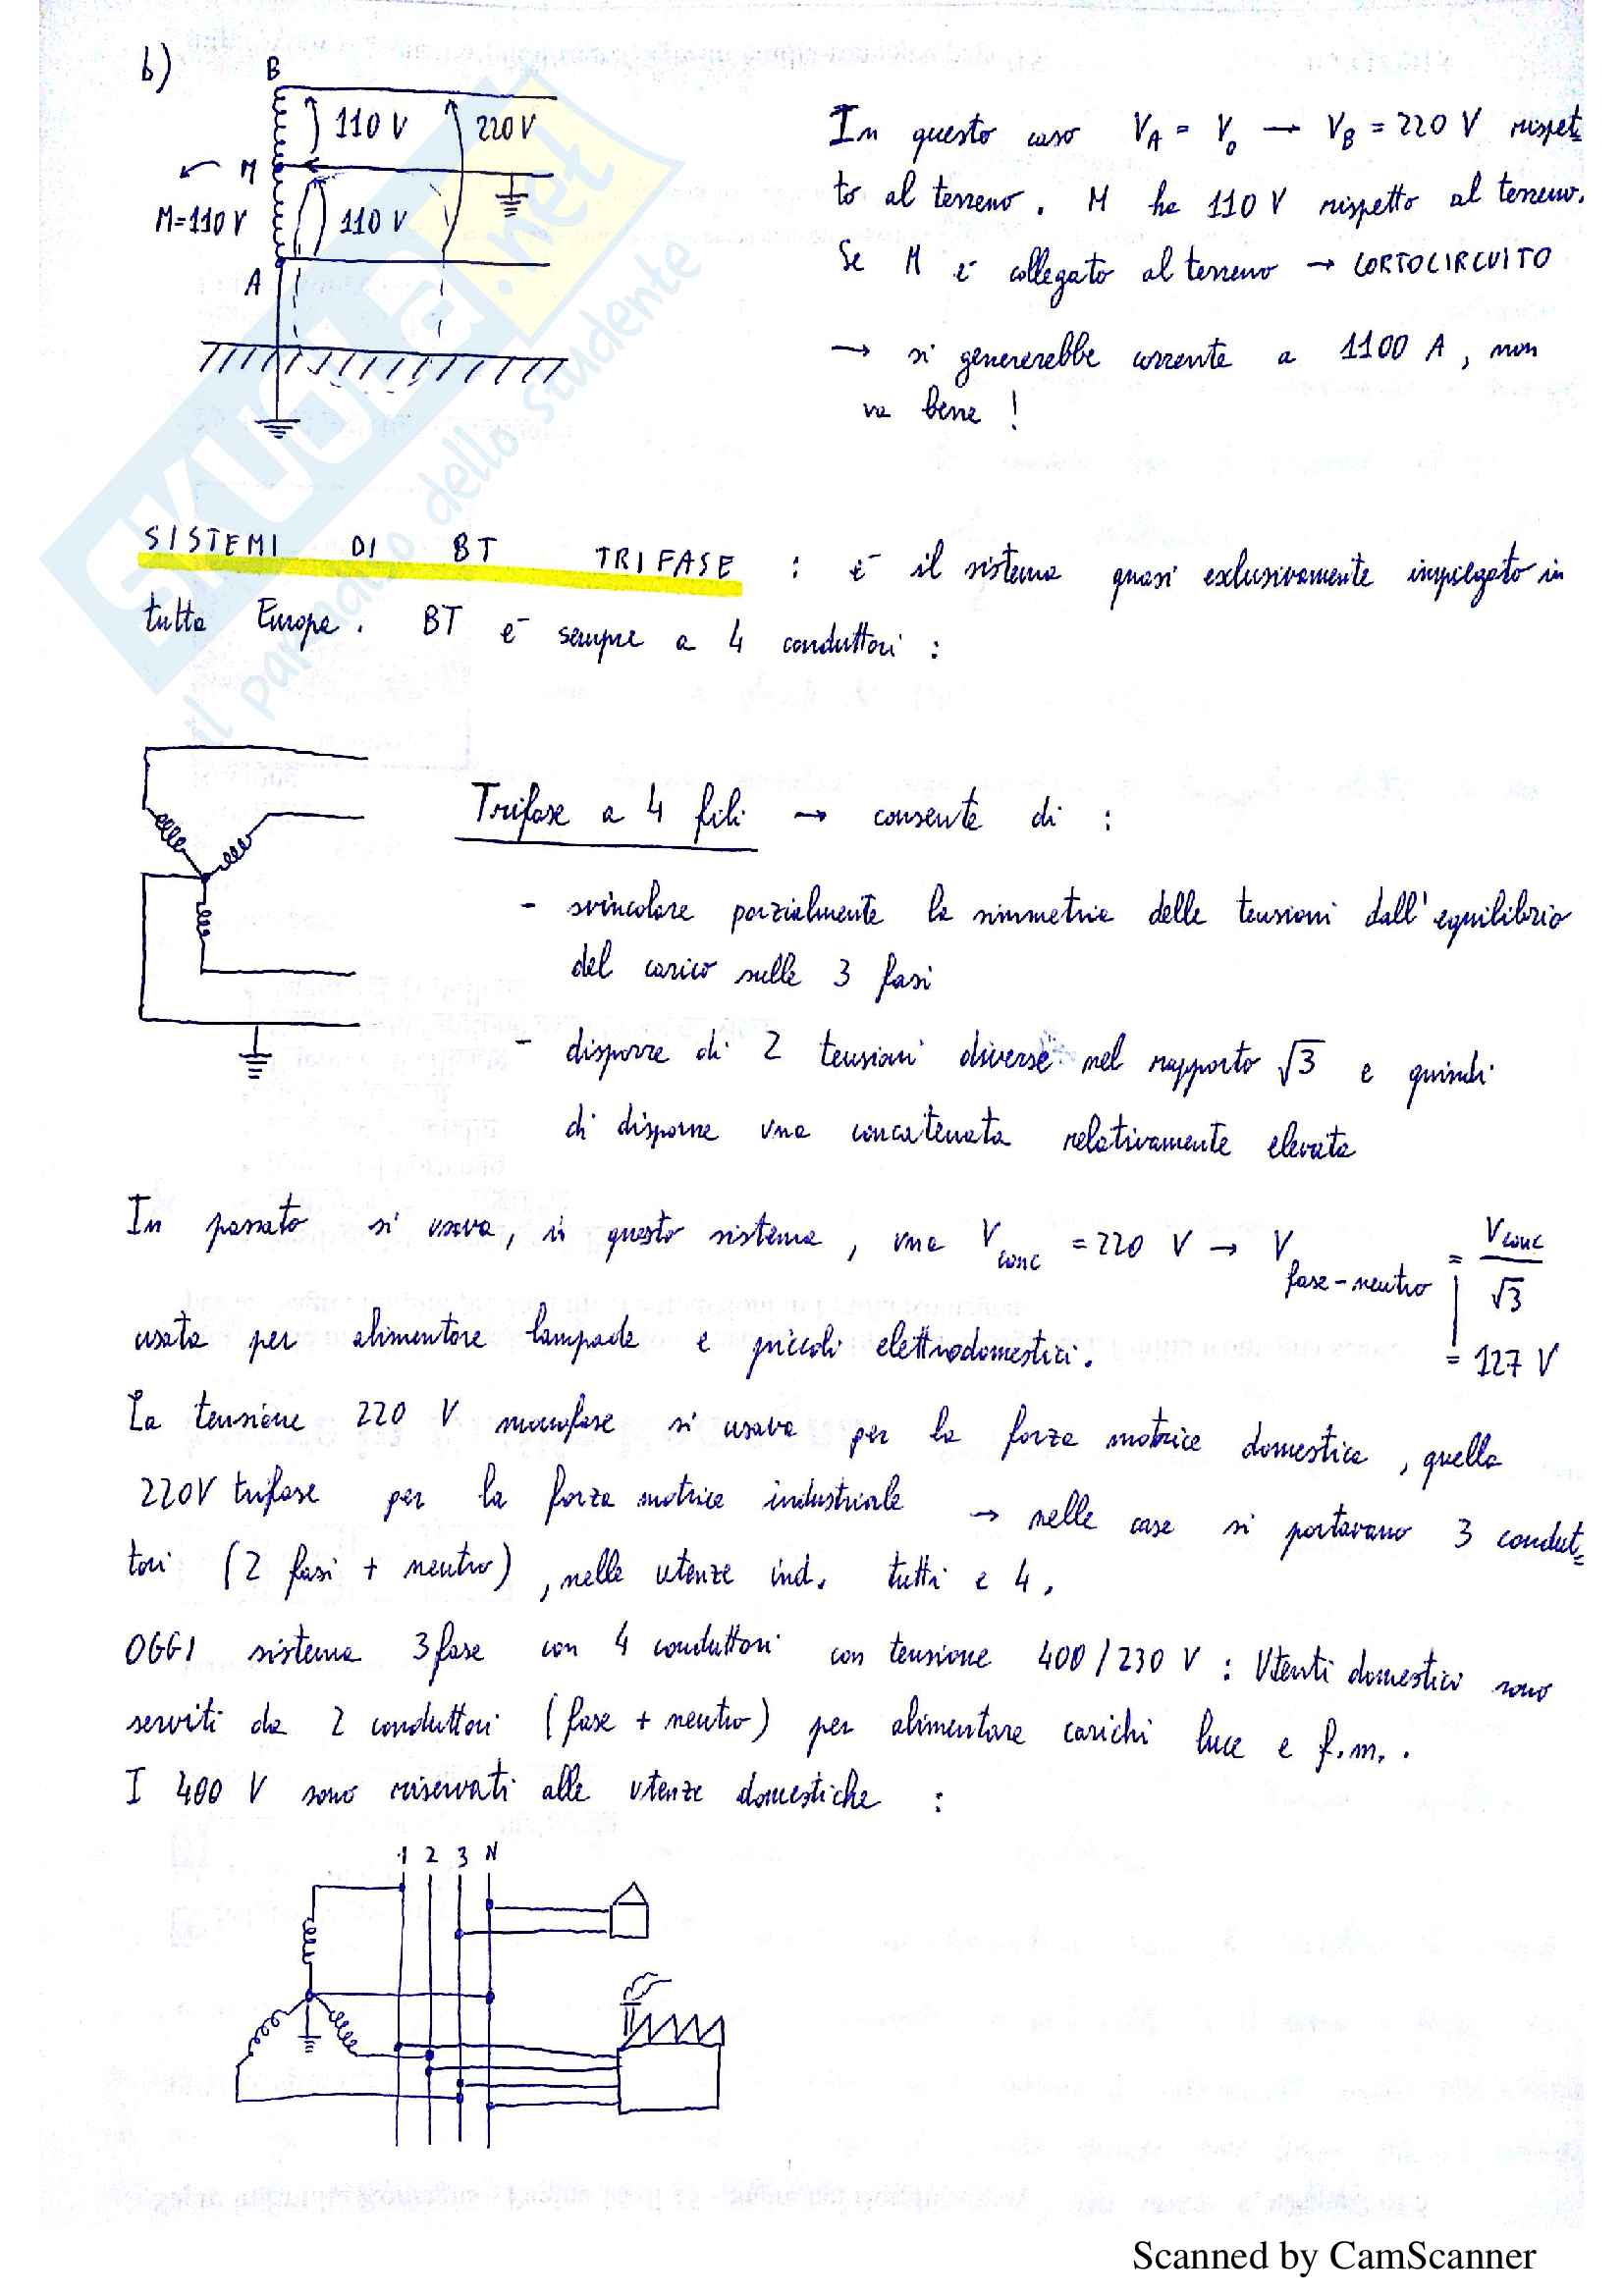 b)
B
110 V
220 V
M
M=110 V
110 V
A
In questo caso VA = V0 → VB = 220 V rispet-
to al terreno. M ha 110 V rispetto al terreno.
Se M è collegato al terreno → CORTOCIRCUITO
→ si genererebbe corrente a 1100 A, non
va bene!
SKUOLA.net
il paradiso dello studente
SISTEMI DI BT TRIFASE : è il sistema quasi exlusivamente impiegato in
tutta Europa. BT è sempre a 4 conduttori :
Trifase a 4 fili → consente di :
- svincolare parzialmente la simmetria delle tensioni dall'equilibrio
del carico sulle 3 fasi
- disporre di 2 tensioni diverse nel rapporto √3 e quindi
di disporre una concatenata relativamente elevata
In passato si usava, in questo sistema, una Vconc = 220 V → Vfase-neutro = Vconc/√3
usata per alimentare lampade e piccoli elettrodomestici. = 127 V
La tensione 220 V monofase si usava per la forza motrice domestica, quella
220V trifase per la forza motrice industriale → nelle case si portavano 3 condut-
tori (2 fasi + neutro), nelle utenze ind. tutti e 4.
OGGI sistema 3fase con 4 conduttori con tensione 400/230 V : Utenti domestici sono
serviti da 2 conduttori (fase + neutro) per alimentare carichi luce e f.m..
I 400 V sono riservati alle utenze domestiche :
1 2 3 N
Scanned by CamScanner